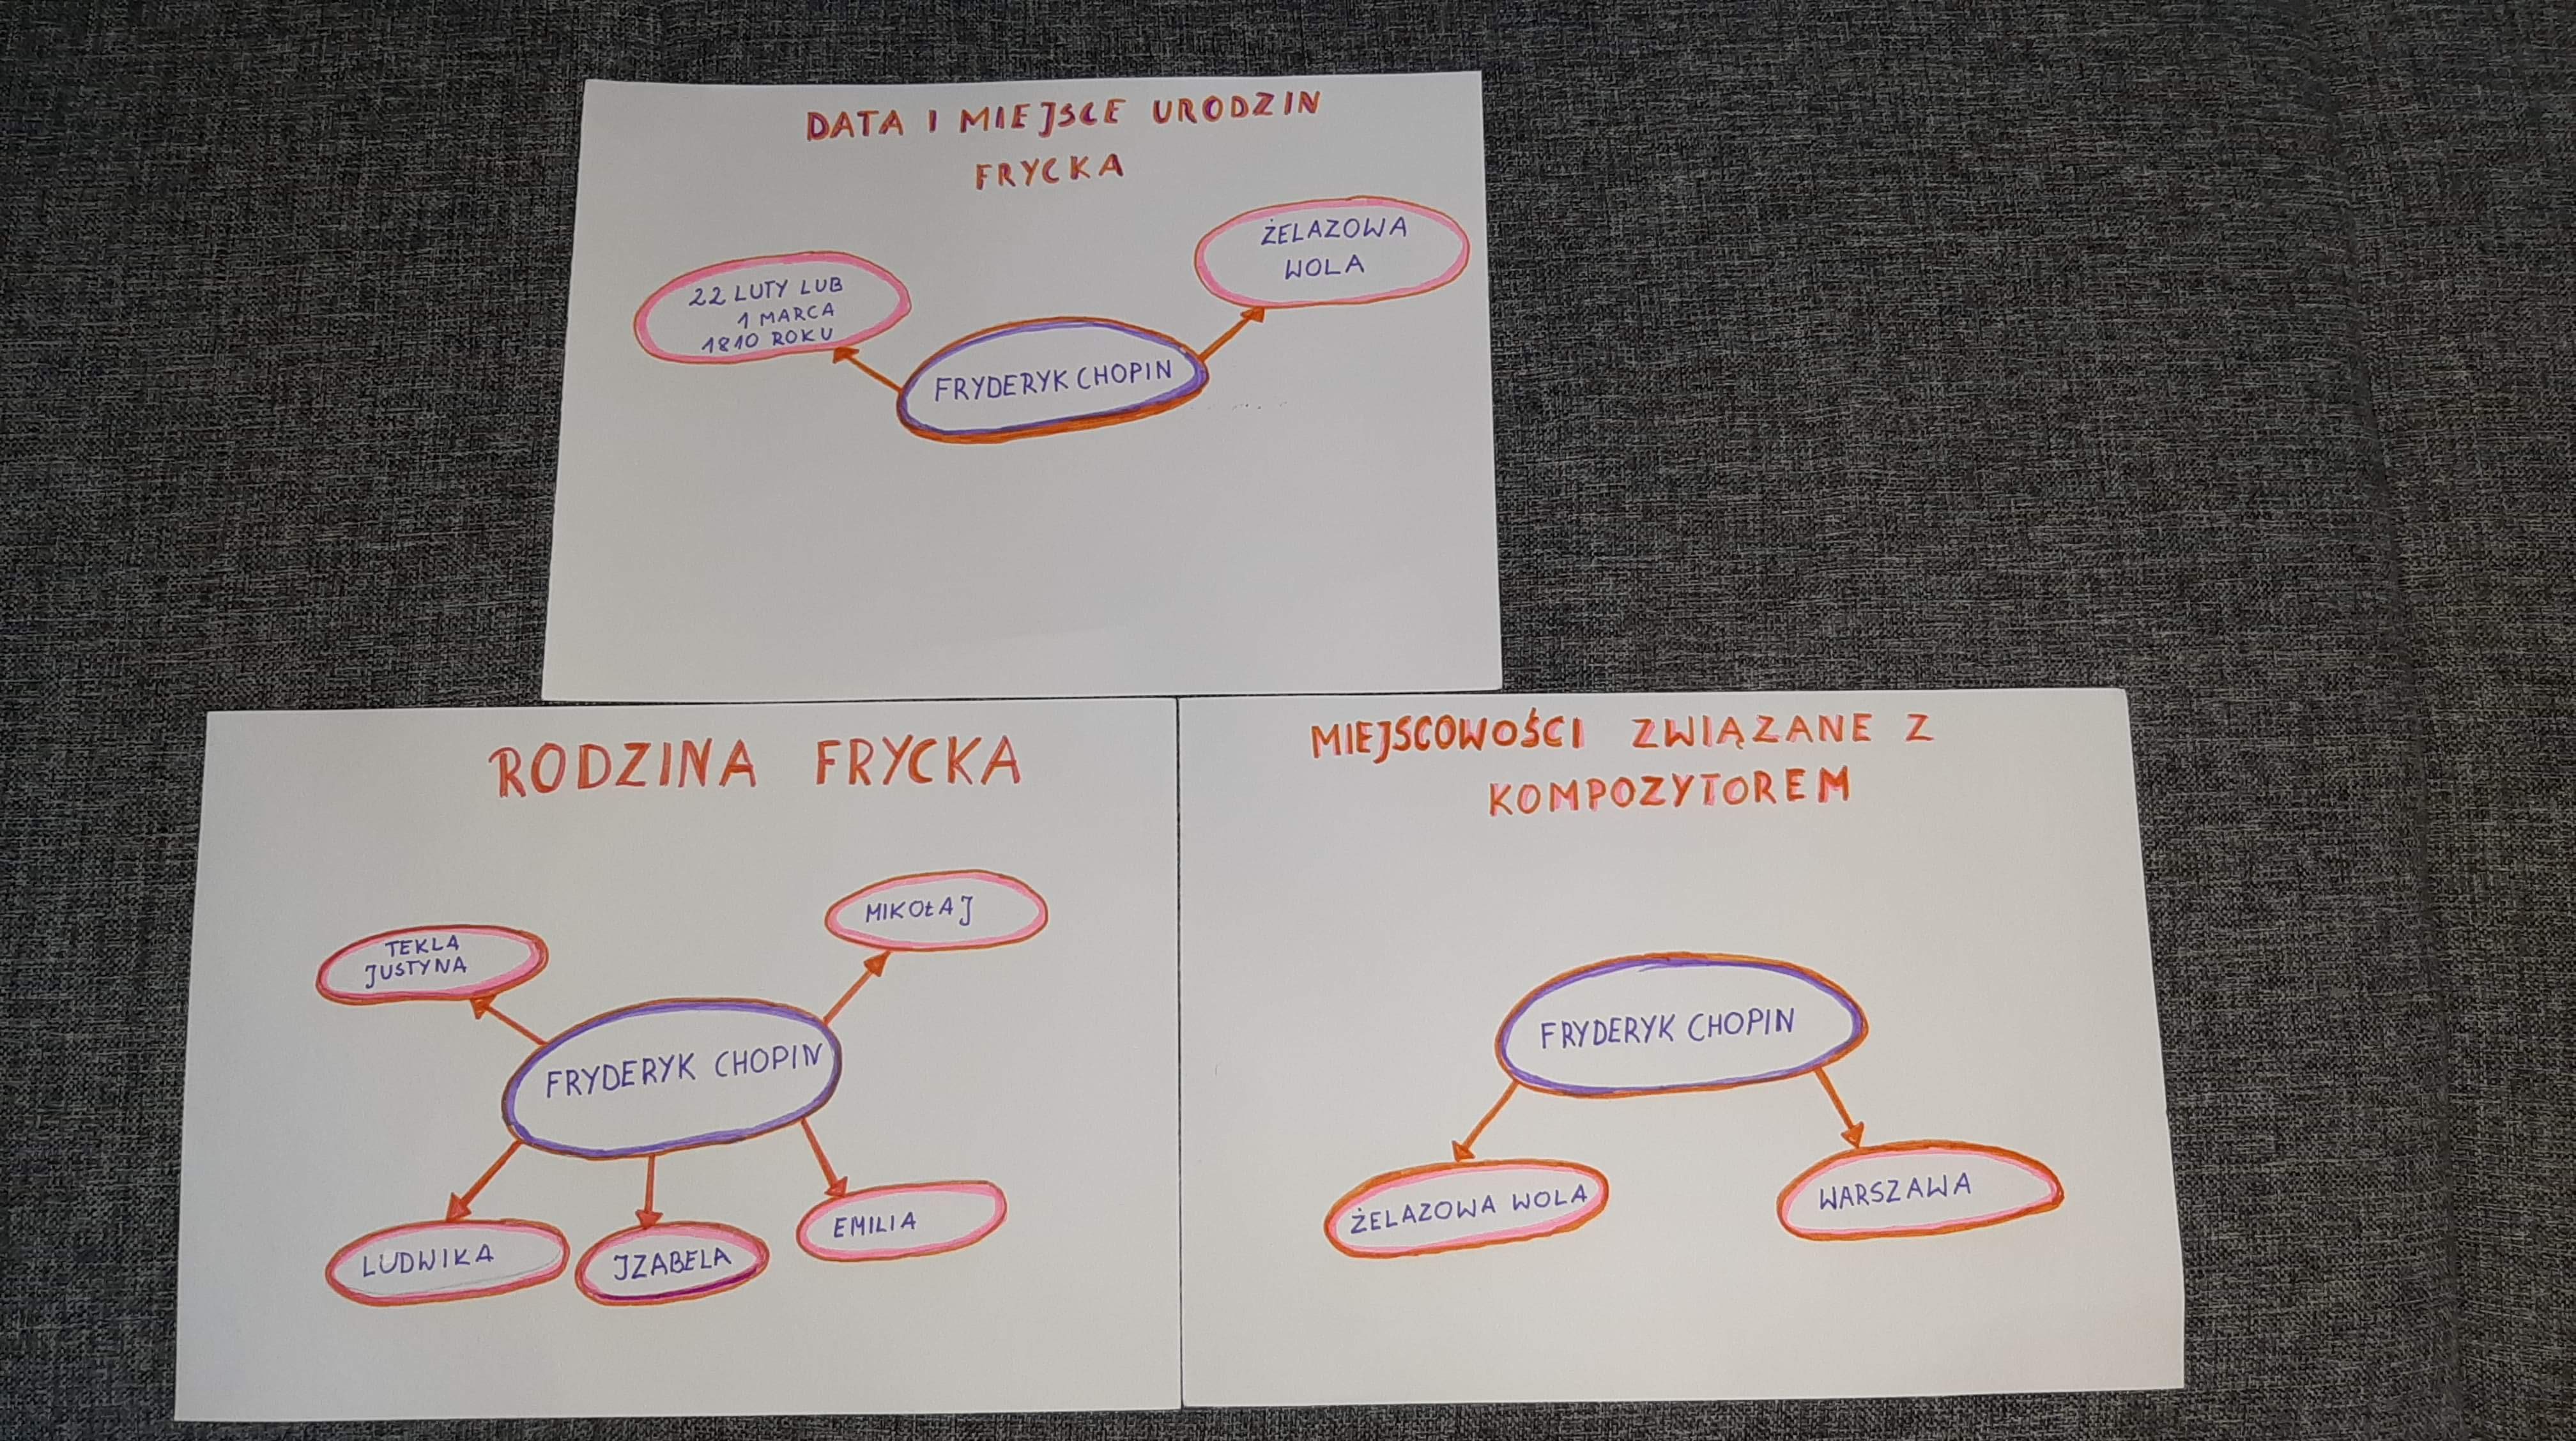 DATA I MIEJSCE URODZIN
FRYCKA
22 LUTY LUB
1 MARCA
1810 ROKU
ŻELAZOWA
WOLA
FRYDERYK CHOPIN
RODZINA FRYCKA
TEKLA
JUSTYNA
MIKOŁAJ
FRYDERYK CHOPIN
LUDWIKA
IZABELA
EMILIA
MIEJSCOWOŚCI ZWIĄZANE Z
KOMPOZYTOREM
FRYDERYK CHOPIN
ŻELAZOWA WOLA
WARSZAWA